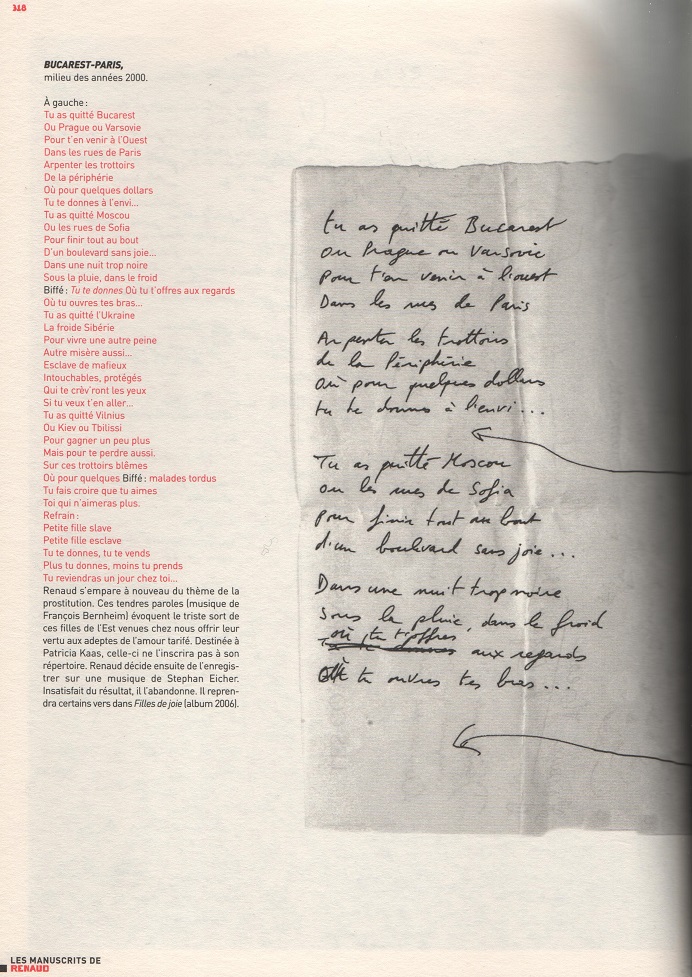 318
BUCAREST-PARIS,
milieu des années 2000.
À gauche :
Tu as quitté Bucarest
Ou Prague ou Varsovie
Pour t'en venir à l'Ouest
Dans les rues de Paris
Arpenter les trottoirs
De la périphérie
Où pour quelques dollars
Tu te donnes à l'envi...
Tu as quitté Moscou
Ou les rues de Sofia
Pour finir tout au bout
D'un boulevard sans joie...
Dans une nuit trop noire
Sous la pluie, dans le froid
Biffé : Tu te donnes Où tu t'offres aux regards
Où tu ouvres tes bras...
Tu as quitté l'Ukraine
La froide Sibérie
Pour vivre une autre peine
Autre misère aussi...
Esclave de mafieux
Intouchables, protégés
Qui te crèv'ront les yeux
Si tu veux t'en aller...
Tu as quitté Vilnius
Ou Kiev ou Tbilissi
Pour gagner un peu plus
Mais pour te perdre aussi.
Sur ces trottoirs blêmes
Où pour quelques Biffé : malades tordus
Tu fais croire que tu aimes
Toi qui n'aimeras plus.
Refrain :
Petite fille slave
Petite fille esclave
Tu te donnes, tu te vends
Plus tu donnes, moins tu prends
Tu reviendras un jour chez toi...
Renaud s'empare à nouveau du thème de la
prostitution. Ces tendres paroles (musique de
François Bernheim) évoquent le triste sort de
ces filles de l'Est venues chez nous offrir leur
vertu aux adeptes de l'amour tarifé. Destinée à
Patricia Kaas, celle-ci ne l'inscrira pas à son
répertoire. Renaud décide ensuite de l'enregis-
trer sur une musique de Stephan Eicher.
Insatisfait du résultat, il l'abandonne. Il repren-
dra certains vers dans Filles de joie (album 2006).
tu as quitté Bucarest
ou Prague ou Varsovie
pour t'en venir à l'ouest
Dans les rues de Paris
Arpenter les trottoirs
de la Périphérie
où pour quelques dollars
tu te donnes à l'envi...
Tu as quitté Moscou
ou les rues de Sofia
pour finir tout au bout
d'un boulevard sans joie...
Dans une nuit trop noire
Sous la pluie, dans le froid
où tu t'offres
aux regards
Où tu ouvres tes bras...
LES MANUSCRITS DE
RENAUD